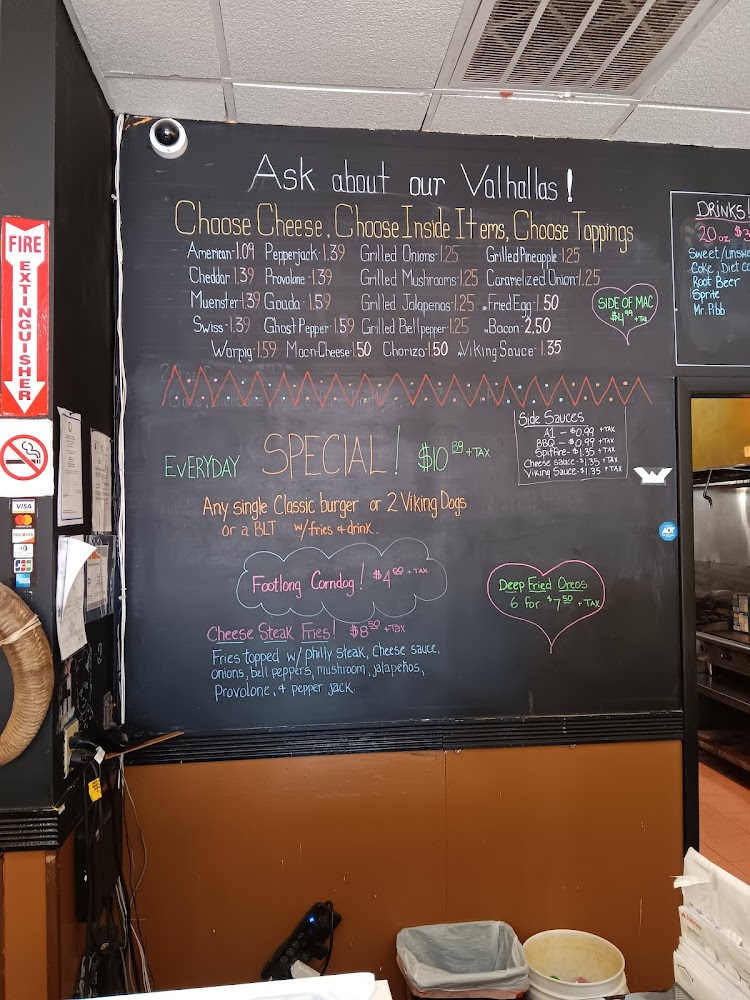 Ask about our Valhallas!
Choose Cheese, Choose Inside Items, Choose Toppings
American-1.09 Pepperjack-1.39 Grilled Onions-1.25 Grilled Pineapple-1.25
Cheddar-1.39 Provolone-1.39 Grilled Mushrooms-1.25 Caramelized Onion-1.25
Muenster-1.39 Gouda-1.59 Grilled Jalapenos-1.25 *Fried Egg-1.50
Swiss-1.39 Ghost Pepper-1.59 Grilled Bell pepper-1.25 *Bacon-2.50
Warpig-1.59 Mac n Cheese-1.50 Chorizo-1.50 *Viking Sauce-1.35
SIDE OF MAC
$4.99 + TAX
DRINKS!
20 oz $3
Sweet/unswe
Coke, Diet C
Root Beer
Sprite
Mr. Pibb
FIRE
EXTINGUISHER
VISA
MasterCard
DISCOVER
JCB
Side Sauces
A1 - $0.99 +TAX
BBQ - $0.99 +TAX
Spitfire-$1.35 +TAX
Cheese sauce-$1.35 +TAX
Viking Sauce-$1.35 +TAX
EVERYDAY SPECIAL! $10.89 +TAX
Any single Classic burger or 2 Viking Dogs
or a BLT w/fries & drink.
ADT
Footlong Corndog! $4.00 + TAX
Deep Fried Oreos
6 for $7.50 + TAX
Cheese Steak Fries! $8.50 +TAX
Fries topped w/ philly steak, cheese sauce,
onions, bell peppers, mushroom, jalapeños,
Provolone, & pepper jack.